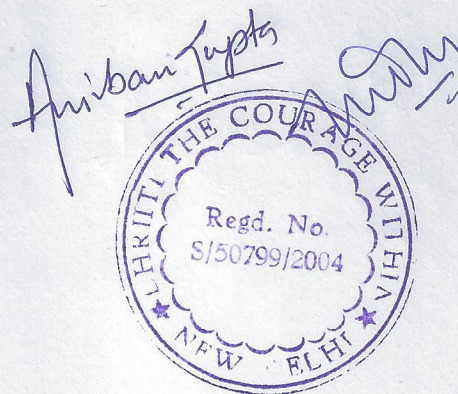 Anirban Gupta
THE COURAGE WITHIN
Regd. No.
S/50799/2004
NEW ELHI